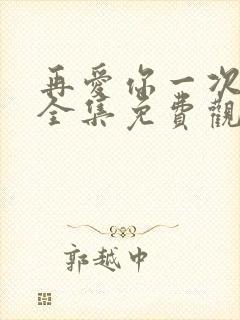 再愛你一次
全集免費觀
郭越中